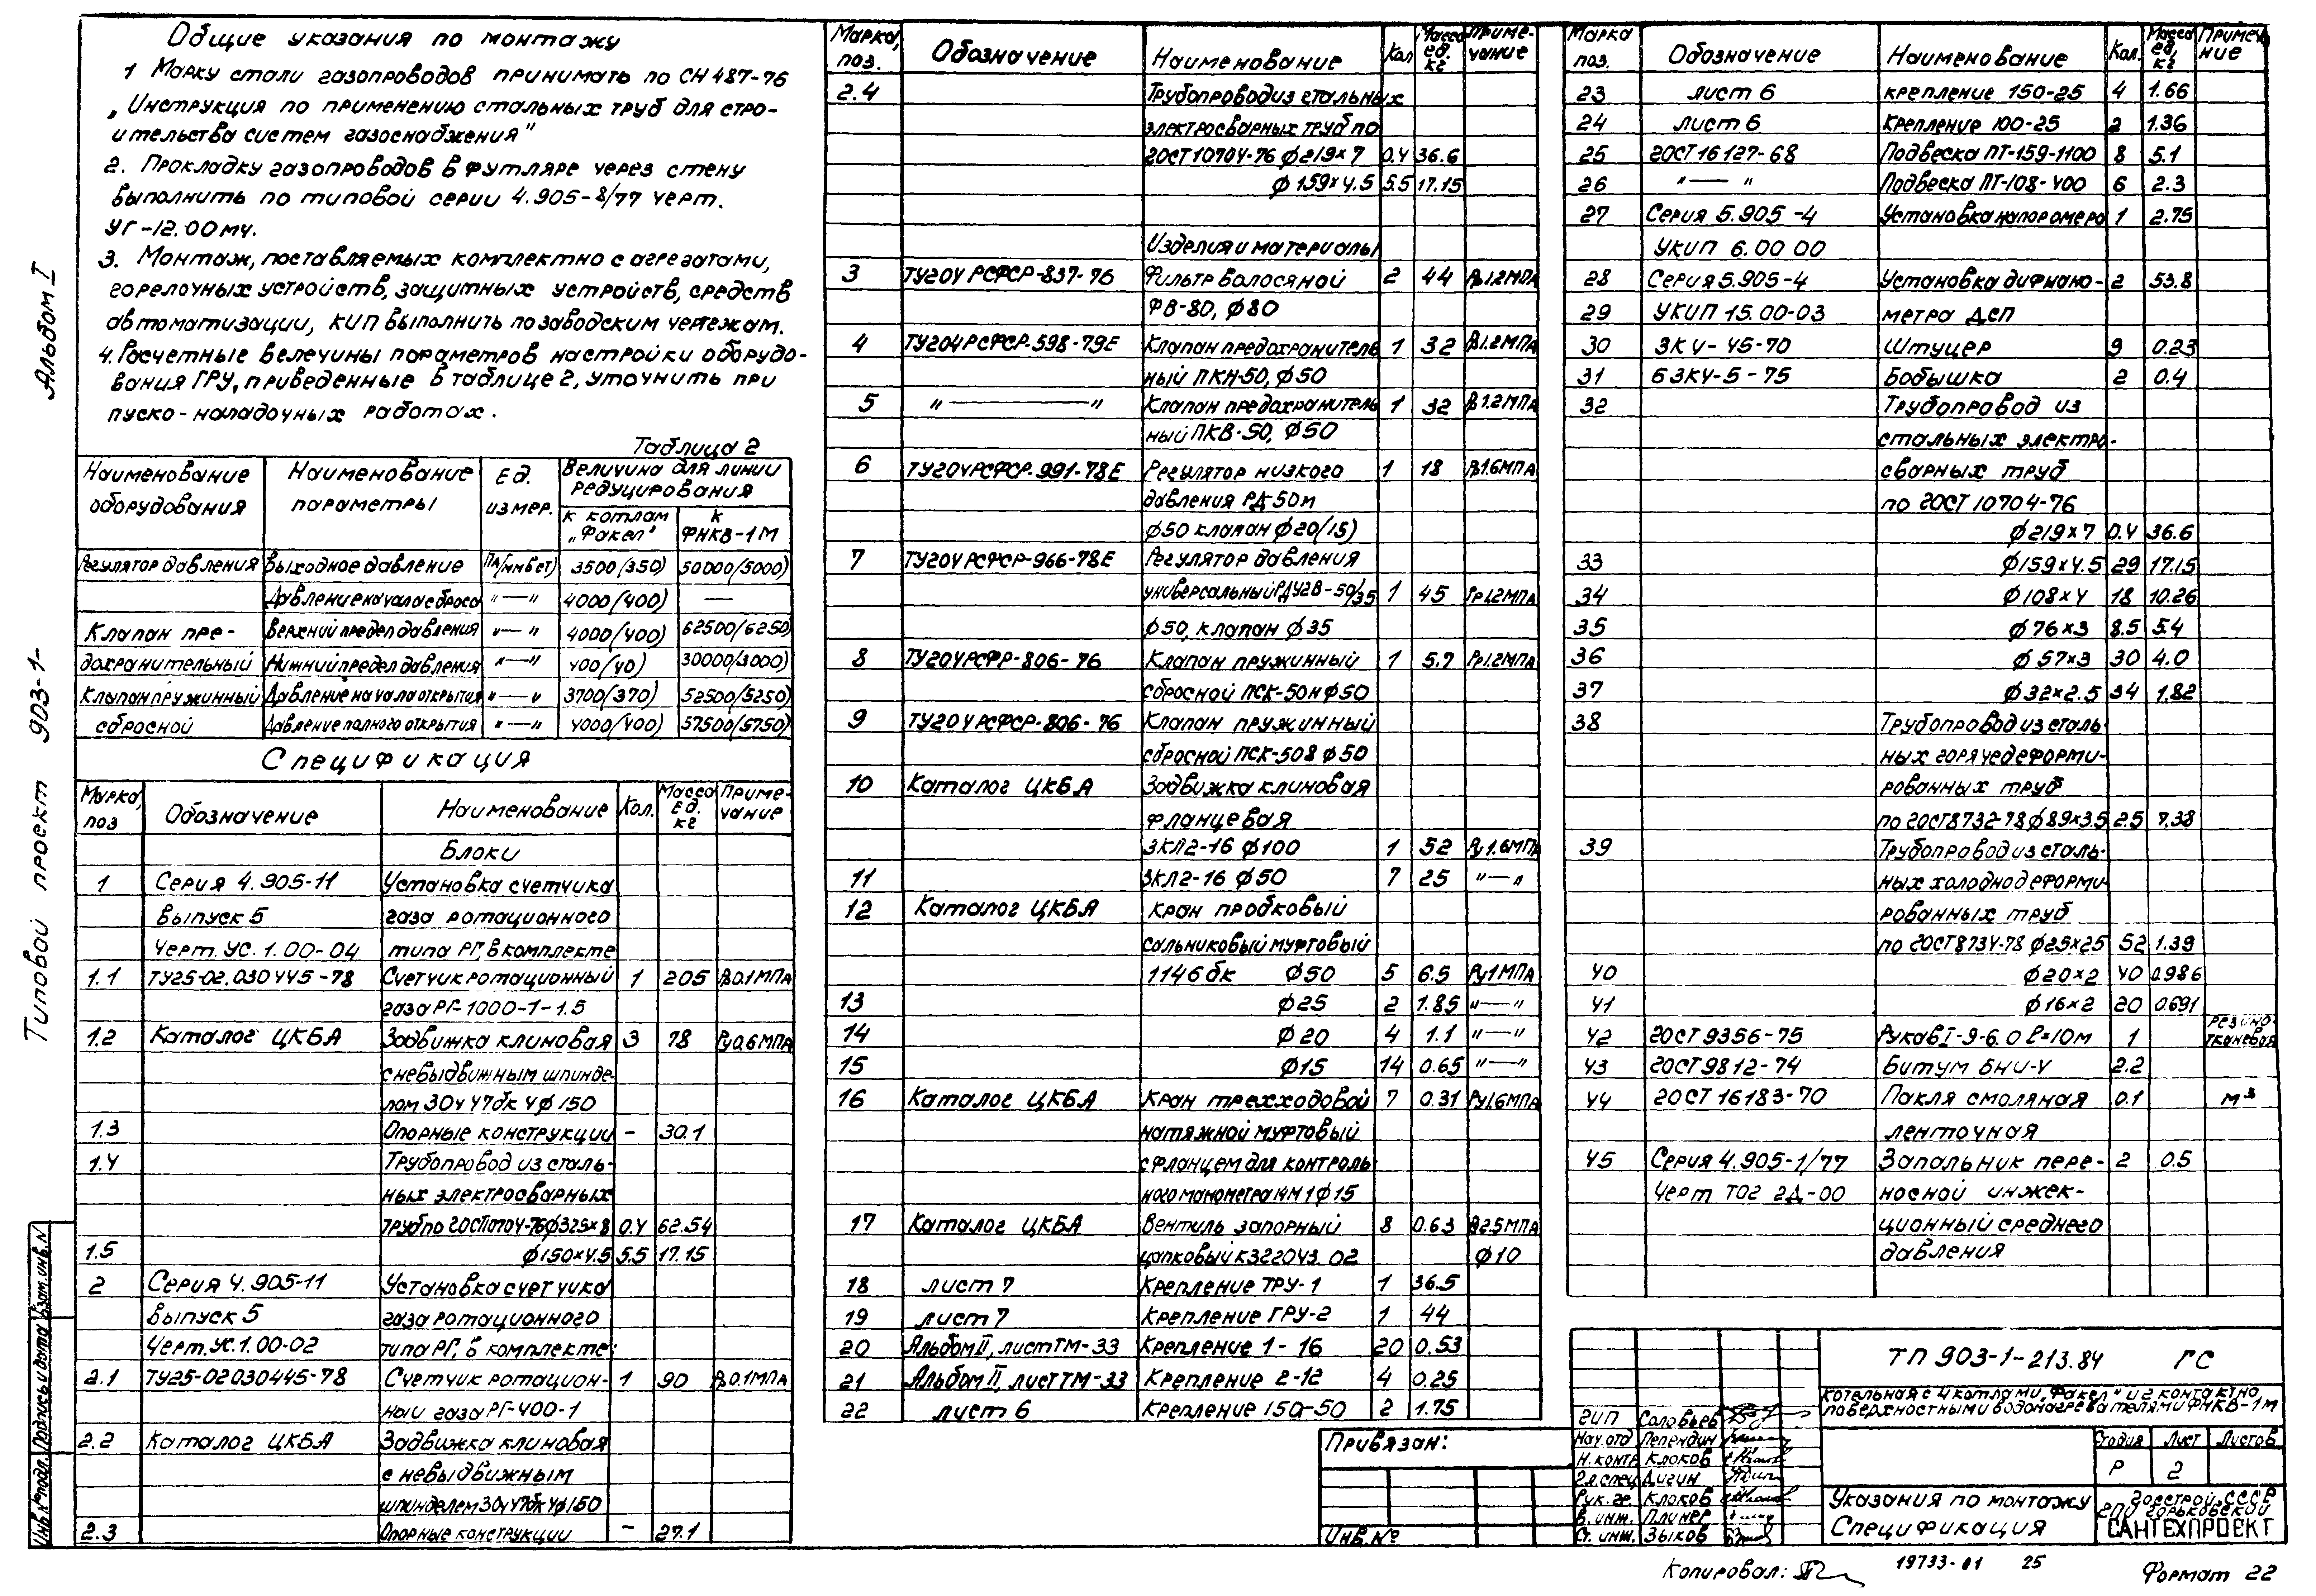 Общие указания по монтажу
1 Марку стали газопроводов принимать по СН 487-76
„Инструкция по применению стальных труб для стро-
ительства систем газоснабжения"
2. Прокладку газопроводов в футляре через стену
выполнить по типовой серии 4.905-8/77 черт.
УГ-12.00мч.
3. Монтаж, поставляемых комплектно с агрегатами,
горелочных устройств, защитных устройств, средств
автоматизации, КИП выполнить по заводским чертежам.
4. Расчетные велечины параметров настройки оборудо-
вания ГРУ, приведенные в таблице 2, уточнить при
пуско-наладочных работах.
Таблица 2
Наименование оборудования Наименование параметры Ед. измер. Величина для линии редуцирования
к котлам „Факел" к ФНКВ-1М
Регулятор давления Выходное давление Па(мм в ст) 3500(350) 50000(5000)
Давление начала сброса "—" 4000(400) —
Клапан пре- Верхний предел давления "—" 4000(400) 62500(6250)
дохранительный Нижний предел давления "—" 400(40) 30000(3000)
Клапан пружинный Давление начала открытия "—" 3700(370) 52500(5250)
сбросной Давление полного открытия "—" 4000(400) 57500(5750)
Спецификация
Марка, поз Обозначение Наименование Кол. Масса ед. кг Приме-чание
Блоки
1 Серия 4.905-11 Установка счетчика
выпуск 5 газа ротационного
Черт. УС.1.00-04 типа РГ, в комплекте
1.1 ТУ25-02.030445-78 Счетчик ротационный 1 205 Ру0.1МПА
газа РГ-1000-1-1.5
1.2 Каталог ЦКБА Задвижка клиновая 3 78 Ру0.6МПА
с невыдвижным шпинде-
лем 30ч 47бк 4 ф150
1.3 Опорные конструкции - 30.1
1.4 Трубопровод из сталь-
ных электросварных
труб по ГОСТ10704-76 ф325×8 0.4 62.54
1.5 ф150×4.5 5.5 17.15
2 Серия 4.905-11 Установка счетчика
выпуск 5 газа ротационного
Черт. УС.1.00-02 типа РГ, в комплекте:
2.1 ТУ25-02030445-78 Счетчик ротацион- 1 90 Ру0.1МПА
ный газа РГ-400-1
2.2 Каталог ЦКБА Задвижка клиновая
с невыдвижным
шпинделем 30ч 47бк 4ф150
2.3 Опорные конструкции - 27.1
Марка, поз. Обозначение Наименование Кол Масса ед. кг Приме-чание
2.4 Трубопровод из стальных
электросварных труб по
ГОСТ10704-76 ф219×7 0.4 36.6
ф159×4.5 5.5 17.15
Изделия и материалы
3 ТУ204 РСФСР-837-76 Фильтр волосяной 2 44 Ру1.2МПА
ФВ-80, ф80
4 ТУ204РСФСР-598-79Е Клапан предохранитель 1 32 Ру1.2МПА
ный ПКН-50, ф50
5 "—" Клапан предохранитель 1 32 Ру1.2МПА
ный ПКВ-50, ф50
6 ТУ204РСФСР-991-78Е Регулятор низкого 1 18 Ру1.6МПА
давления РД-50м
ф50 клапан ф20(15)
7 ТУ204РСФСР-966-78Е Регулятор давления
универсальный РДУ2В-50/35 1 45 Рр1.2МПА
ф50, клапан ф35
8 ТУ204РСФР-806-76 Клапан пружинный 1 5.7 Рр1.2МПА
сбросной ПСК-50Н ф50
9 ТУ204РСФСР-806-76 Клапан пружинный
сбросной ПСК-50В ф50
10 Каталог ЦКБА Задвижка клиновая
фланцевая
ЗКЛ2-16 ф100 1 52 Ру1.6МПА
11 ЗКЛ2-16 ф50 7 25 "—"
12 Каталог ЦКБА Кран пробковый
сальниковый муфтовый
11ч6бк ф50 5 6.5 Ру1МПА
13 ф25 2 1.85 "—"
14 ф20 4 1.1 "—"
15 ф15 14 0.65 "—"
16 Каталог ЦКБА Кран трехходовой 7 0.31 Ру1.6МПА
натяжной муфтовый
с фланцем для контроль
ного манометра 14М1 ф15
17 Каталог ЦКБА Вентиль запорный 8 0.63 Ру2.5МПА
цапковый КЗ22043.02 ф10
18 лист 7 Крепление ГРУ-1 1 36.5
19 лист 7 Крепление ГРУ-2 1 44
20 Альбом II, лист ТМ-33 Крепление 1-16 20 0.53
21 Альбом II, лист ТМ-33 Крепление 2-12 4 0.25
22 лист 6 Крепление 150-50 2 1.75
Марка поз. Обозначение Наименование Кол. Масса ед. кг Примечание
23 лист 6 крепление 150-25 4 1.66
24 лист 6 Крепление 100-25 2 1.36
25 ГОСТ 16127-68 Подвеска ПТ-159-1100 8 5.1
26 "—" Подвеска ПТ-108-400 6 2.3
27 Серия 5.905-4 Установка напоромера 1 2.75
УКИП 6.00 00
28 Серия 5.905-4 Установка дифмано- 2 53.8
29 УКИП 15.00-03 метра ДСП
30 ЗК4-45-70 Штуцер 9 0.23
31 БЗК4-5-75 Бобышка 2 0.4
32 Трубопровод из
стальных электро-
сварных труб
по ГОСТ 10704-76
ф219×7 0.4 36.6
33 ф159×4.5 29 17.15
34 ф108×4 18 10.26
35 ф76×3 8.5 5.4
36 ф57×3 30 4.0
37 ф32×2.5 34 1.82
38 Трубопровод из сталь-
ных горячедеформи-
рованных труб
по ГОСТ8732-78 ф89×3.5 2.5 7.38
39 Трубопровод из сталь-
ных холоднодеформи-
рованных труб
по ГОСТ8734-78 ф25×25 52 1.39
40 ф20×2 40 0.986
41 ф16×2 20 0.691
42 ГОСТ 9356-75 Рукав I-9-6.0 l=10м 1 резино-тканевая
43 ГОСТ 9812-74 Битум БНИ-V 2.2
44 ГОСТ 16183-70 Пакля смоляная 0.1 м³
ленточная
45 Серия 4.905-1/77 Запальник пере- 2 0.5
Черт Т02 2Д-00 носной инжек-
ционный среднего
давления
ТП 903-1-213.84 ГС
Котельная с 4 котлами „Факел" и 2 контактно
поверхностными водонагревателями ФНКВ-1М
Привязан:
Инв.№
ГИП Соловьев
Нач.отд Лепендин
Н.контр Клоков
Гл.спец Дигин
Рук.гр. Клоков
В.инж. Плинер
Ст.инж. Зыков
Стадия Лист Листов
Р 2
Указания по монтажу
Спецификация
Госстрой СССР
ГПИ Горьковский
САНТЕХПРОЕКТ
Копировал:
19733-01 25
Формат 22
Альбом I
Типовой проект 903-1-
Инв.№подл. Подпись и дата Взам.инв.N